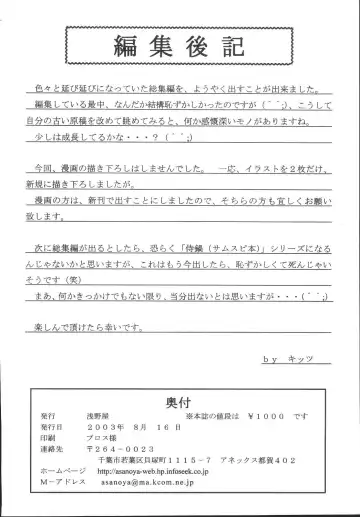 編集後記
色々と延び延びになっていた総集編を、ようやく出すことが出来ました。
編集している最中、なんだか結構恥ずかしかったのですが(＾＾;)、こうして
自分の古い原稿を改めて眺めてみると、何か感慨深いモノがありますね。
少しは成長してるかな・・・？(＾＾;)
今回、漫画の描き下ろしはしませんでした。　一応、イラストを２枚だけ、
新規に描き下ろしましたが。
漫画の方は、新刊で出すことにしましたので、そちらの方も宜しくお願い
致します。
次に総集編が出るとしたら、恐らく「侍鏡（サムスピ本）」シリーズになる
んじゃないかと思いますが、これはもう今出したら、恥ずかしくて死んじゃい
そうです（笑）
まあ、何かきっかけでもない限り、当分出ないとは思いますが・・・(＾＾;)
楽しんで頂けたら幸いです。
ｂｙ　キッツ
奥付
発行　浅野屋　※本誌の値段は　￥１０００　です
発行日　２００３年　８月　１６日
印刷　プロス様
連絡先　〒２６４－００２３
千葉市若葉区貝塚町１１１５－７　アネックス都賀４０２
ホームページ　http://asanoya-web.hp.infoseek.co.jp
Ｍ－アドレス　asanoya@ma.kcom.ne.jp